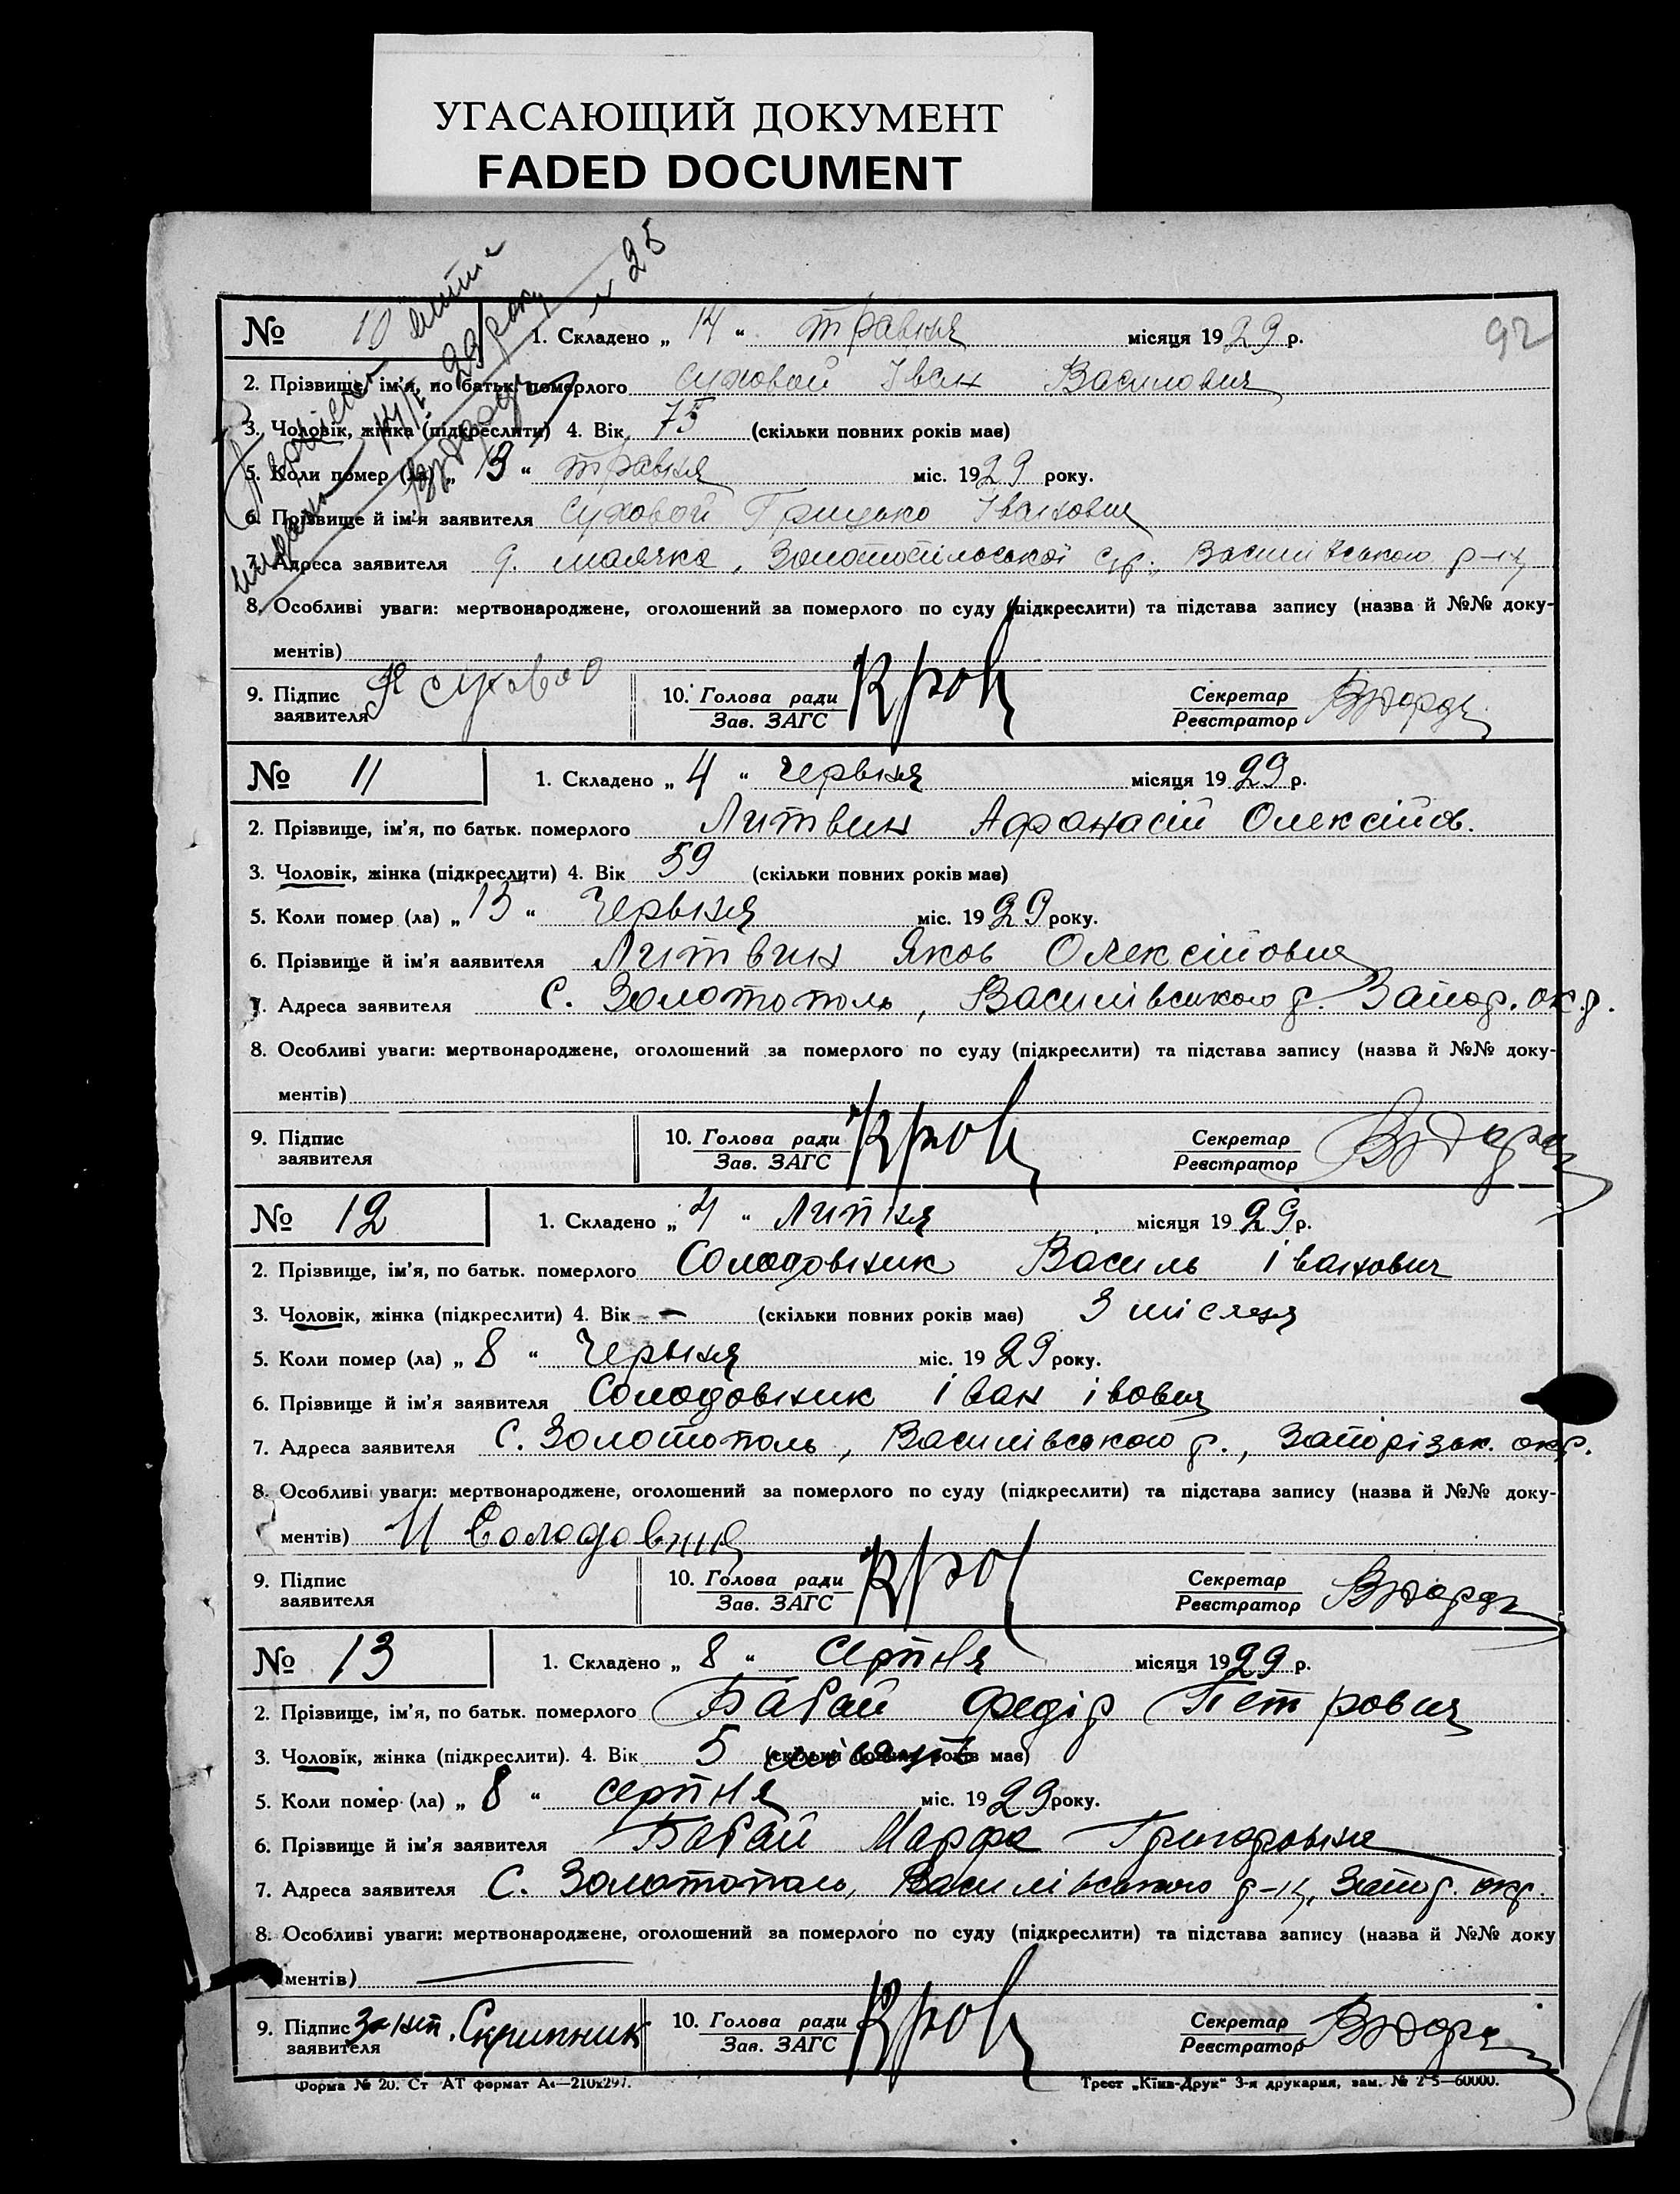 УГАСАЮЩИЙ ДОКУМЕНТ
FADED DOCUMENT
92
№ 10 1. Складено „ 14 “ травня місяця 1929 р.
2. Прізвище, ім'я, по батьк. померлого Суховой Іван Василович
3. Чоловік, жінка (підкреслити) 4. Вік 75 (скільки повних років має)
5. Коли помер (ла) „ 13 “ травня міс. 1929 року.
6. Прізвище й ім'я заявителя Суховой Грицько Іванович
7. Адреса заявителя Золотопільської Василівського р-ну
8. Особливі уваги: мертвонароджене, оголошений за померлого по суду (підкреслити) та підстава запису (назва й №№ доку-
ментів)
9. Підпис заявителя 10. Голова ради Зав. ЗАГС Секретар Реєстратор
№ 11 1. Складено „ 4 “ Червня місяця 1929 р.
2. Прізвище, ім'я, по батьк. померлого Литвин Афанасій Олексійов.
3. Чоловік, жінка (підкреслити) 4. Вік 59 (скільки повних років має)
5. Коли помер (ла) „ “ Червня міс. 1929 року.
6. Прізвище й ім'я заявителя Литвин Яков Олексійович
7. Адреса заявителя С. Золотополь, Василівського р. Запор. окр.
8. Особливі уваги: мертвонароджене, оголошений за померлого по суду (підкреслити) та підстава запису (назва й №№ доку-
ментів)
9. Підпис заявителя 10. Голова ради Зав. ЗАГС Секретар Реєстратор
№ 12 1. Складено „ 4 “ Липня місяця 1929 р.
2. Прізвище, ім'я, по батьк. померлого Солодовник Василь Іванович
3. Чоловік, жінка (підкреслити) 4. Вік – (скільки повних років має) 3 місяця
5. Коли помер (ла) „ 8 “ Червня міс. 1929 року.
6. Прізвище й ім'я заявителя Солодовник Іван Івович
7. Адреса заявителя С. Золотополь, Василівського р., Запорізьк. окр.
8. Особливі уваги: мертвонароджене, оголошений за померлого по суду (підкреслити) та підстава запису (назва й №№ доку-
ментів) И Солодовник
9. Підпис заявителя 10. Голова ради Зав. ЗАГС Секретар Реєстратор
№ 13 1. Складено „ 8 “ Серпня місяця 1929 р.
2. Прізвище, ім'я, по батьк. померлого Бабай Федір Петрович
3. Чоловік, жінка (підкреслити). 4. Вік 5 (скільки повних років має)
5. Коли помер (ла) „ 8 “ серпня міс. 1929 року.
6. Прізвище й ім'я заявителя Бабай Марфа Григоровна
7. Адреса заявителя С. Золотополь, Василівського р-ну, Запор. окр.
8. Особливі уваги: мертвонароджене, оголошений за померлого по суду (підкреслити) та підстава запису (назва й №№ доку
ментів)
9. Підпис заявителя Скрипник 10. Голова ради Зав. ЗАГС Секретар Реєстратор
Форма № 20. Ст АТ формат А4—210x297. Трест „Київ-Друк“ 3-я друкарня, зам. № 2 5—60000.